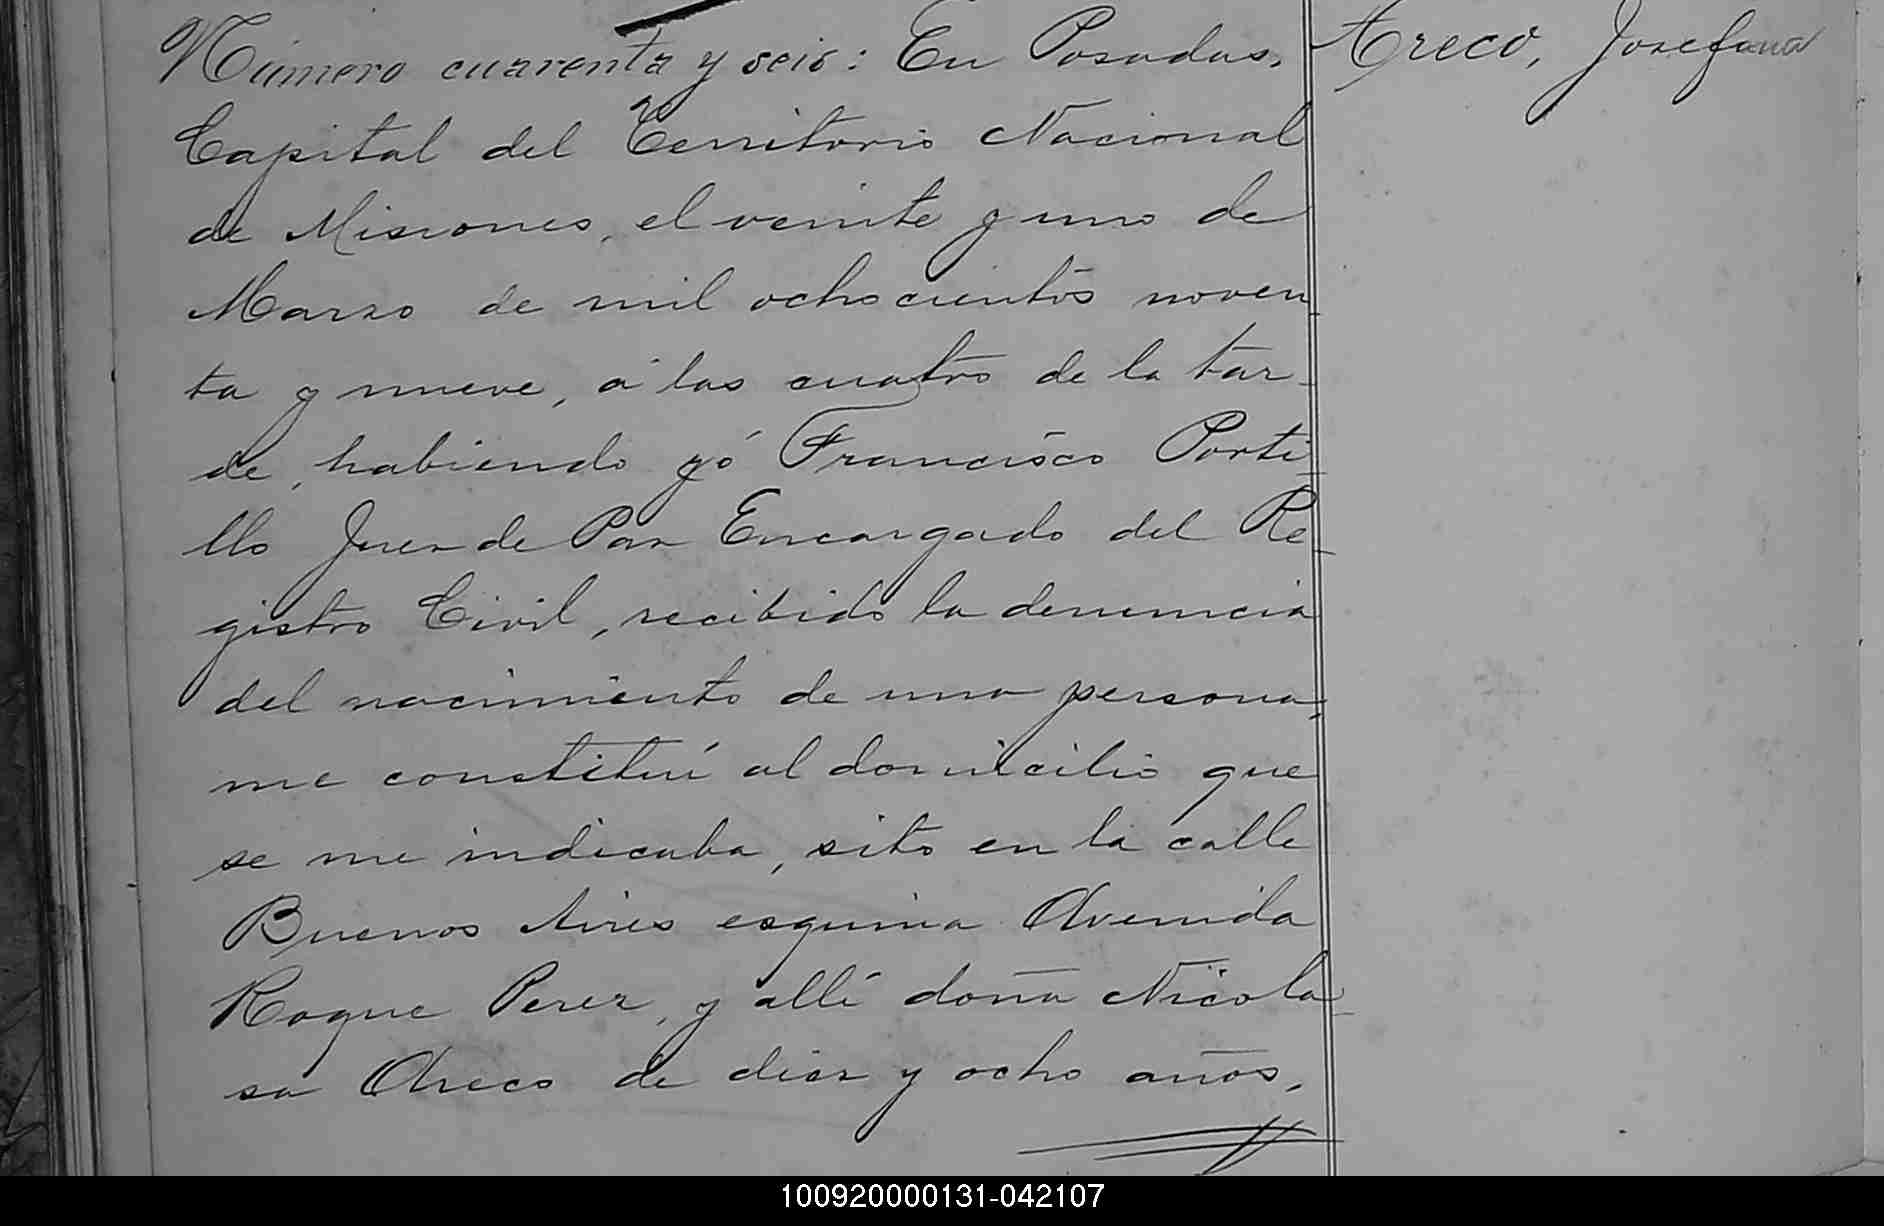 Número cuarenta y seis: En Posadas,
Areco, Josefana
Capital del Territorio Nacional
de Misiones, el veinte y uno de
Marzo de mil ochocientos noven
ta y nueve, á las cuatro de la tar-
de, habiendo yó Francisco Porti-
llo Juez de Paz Encargado del Re-
gistro Civil, recibido la denuncia
del nacimiento de una persona,
me constituí al domicilio que
se me indicaba, sito en la calle
Buenos Aires esquina Avenida
Roque Perez, y allí doña Nicola-
sa Areco de diez y ocho años,
100920000131-042107